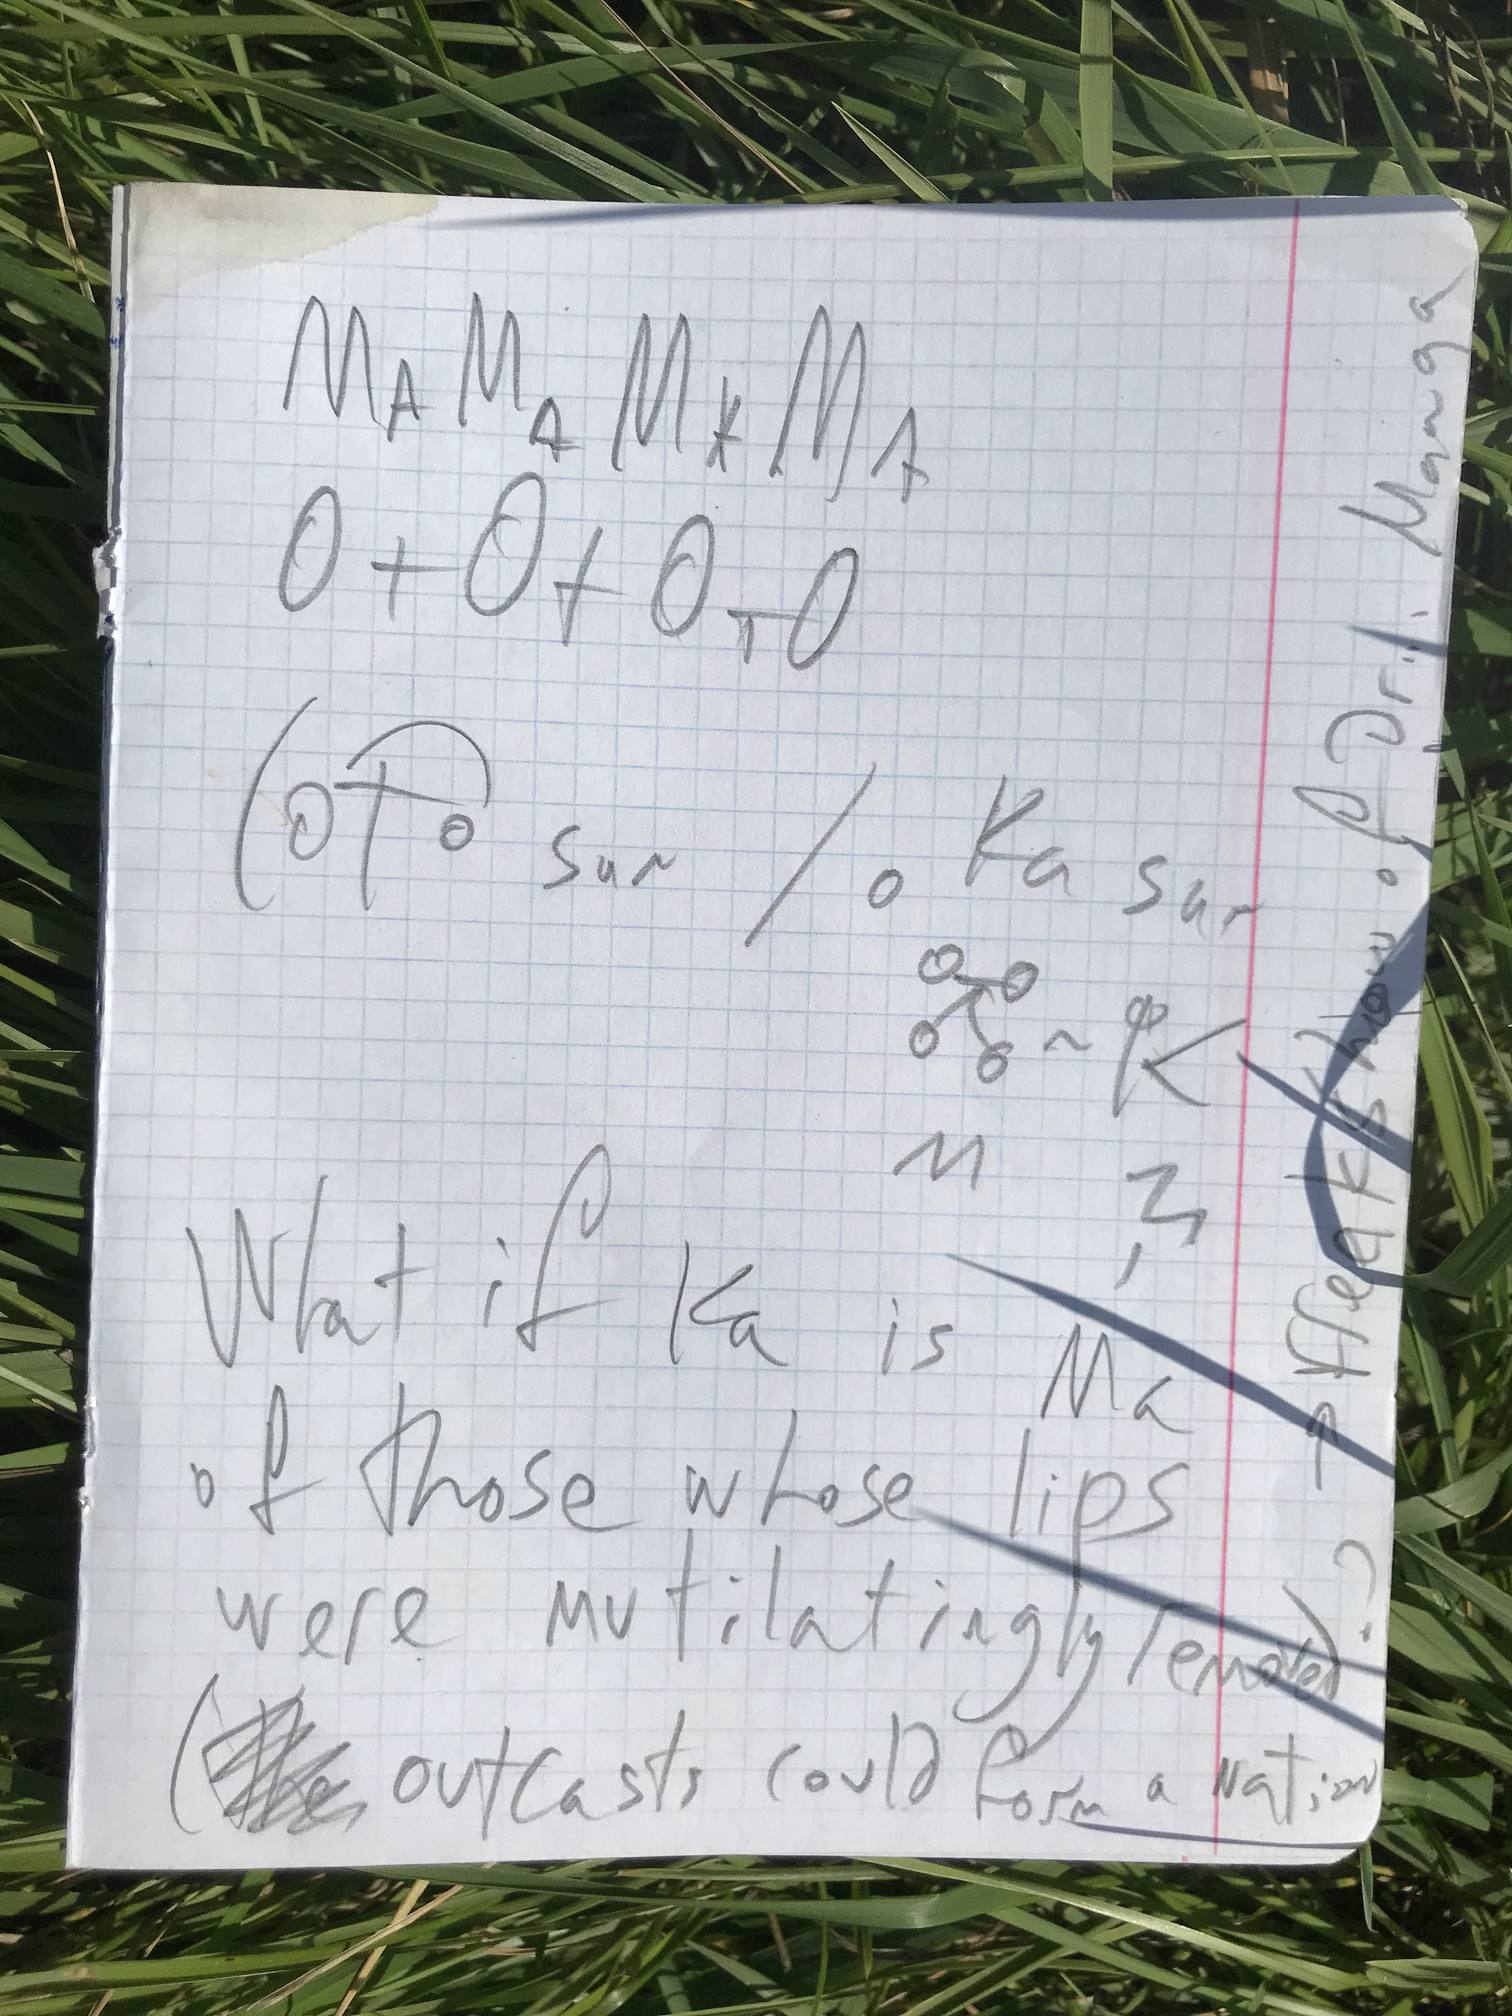 MAMAMAMA
O+O+OTO
(OTO sun / o Ka sun
~ φK
M 3,
What if Ka is Ma
of those whose lips
were mutilatingly removed?
( outcasts could form a nation
of Dril. Manga